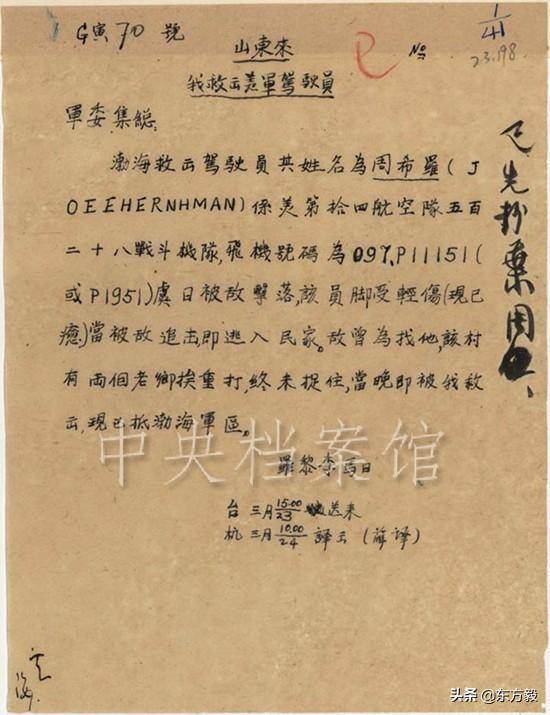 G寅70號
1/41
No
23.198
山東來
我救出美軍駕駛員
軍委.集總:
渤海救出駕駛員其姓名為周希羅(J
OEEHERNHMAN)係美第拾四航空隊五百
二十八戰斗機隊,飛機號碼為097,P11151(
或P1951)虞日被敌擊落,該員脚受輕傷(現已
癒)當被敌追击,即逃入民家。敌曾為找他,該村
有兩佪老鄉挨重打,終未捉住,當晚即被我救
出,現已抵渤海軍區。
羅黎李馬日
台三月15.00/23送来
杭三月10.00/24譯出(節譯)
已先抄葉周
中央档案馆
头条 @东方毅